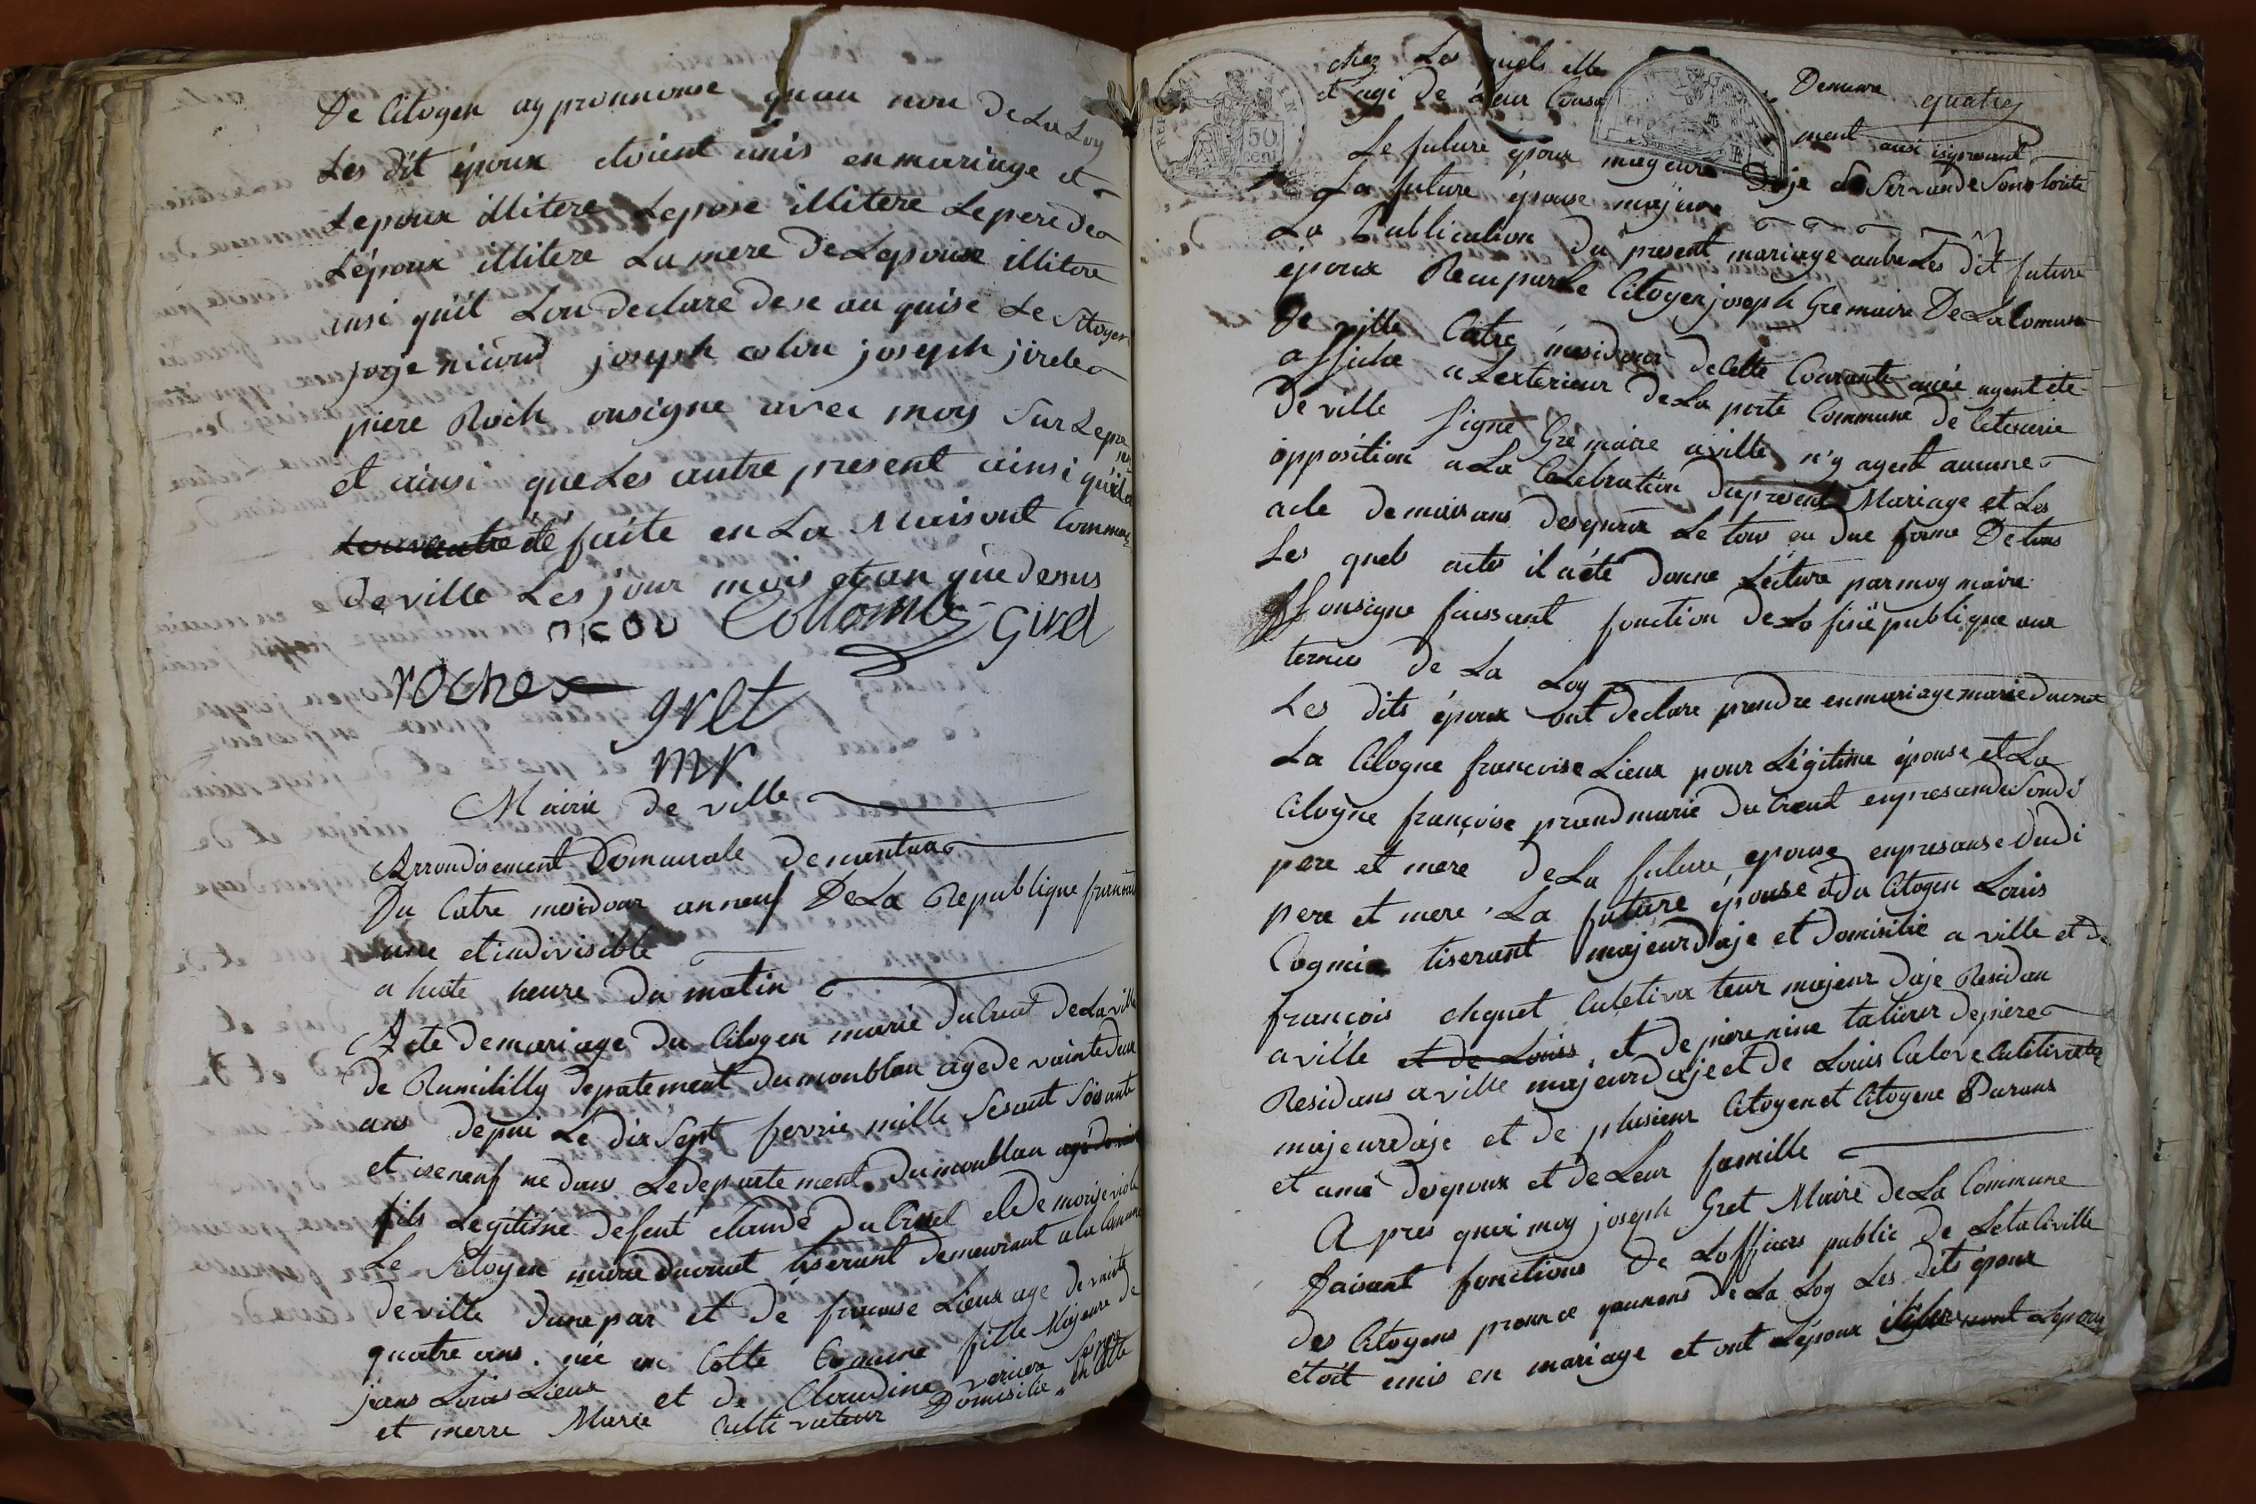 De Citoyen ay prononcé quau non De La Loy
Les dit époux etoient unis en mariage et
Lepoux illitere Lepose illitere Le pere de
Lépoux illitere La mere De Lepouse illitere
insi quil Lon declare de se au quise Le sitoyen
jorje nicoud joseph colon joseph jirele
piere Roch onsigne avec moy Sur Le pre
et ainsi que Les autre present ainsi quil
été faite en La Maisont Commune
de ville Les jour mois et an que desus
nicou Collomb Girel
roche
gret
mr
Mairie de ville
Arrondisement Comunale de nantua
Du Catre mesidour an neuf De La Republique fransaise
une et indivisible
a huite heure du matin
Acte de mariage du Citoyen marie ducruet De La ville
de Rumililly depatement du monblan age de vainte deux
ans depui Le dix Sept fevrie mille Sesant Soisante
et iseneuf ne dans Le departement du monblan
fils Legitime defent claude Ducruet et De moise viole
Le Sitoyen marie ducruet tiserant demeurant a la Commune
de ville dune par et De francoise Lieux age de vainte
quatre ans née en Cette Comune fille Majeure de
jans Louis Lieux et de Claudine
et merre Marie Cultivateur Domisilie en Cette
chez Les quels elle Demeure quatre
et agi de Leur Consente ment
Le future époux mageure Daje
La future épouse majeure
La Publication du present mariage entre Les dit future
époux Recu par Le Citoyen joseph Gre maire De La Comune
De ville Catre mesidour de Cette Courante anée ayent été
affiche a Lexterieur De La porte Commune De
De ville Signé Gre maire a ville n'y ayent aucune
opposition a La Celebration du present Mariage et Les
acte de naissans des époux Le tous en Due forme De tous
Les quels actes il a été donne Lecture par moy maire
onsigne faissant fonction De La publique aux
termes de La Loy
Les dits époux ont declare prendre en mariage marie ducruet
La Citogne francoise Lieux pour Légitime épouse et La
Citoyne françoise prand marie du cruet
pere et mere de La future epouse en presanse Dudi
pere et mere La future épouse et du Citogen Louis
Cognie tiserant majeur daje et Domisilie a ville et de
françois chquet Culetiva teur majeur daje Residan
a ville et de Louis et de piere nine talieur de piere
Residans a ville majeur daje et de Louis Cultivateur
majeur daje et de plusieur Citoyen et Citoyene Parans
et amé des époux et de Leur famille
A pres quoi moy joseph Gret Maire De La Commune
faisant fonctions De Loffisiers public de Letat Civille
des Citoyens pronnce quau nons De La Loy Les dits époux
étoit unis en mariage et ont Lépoux